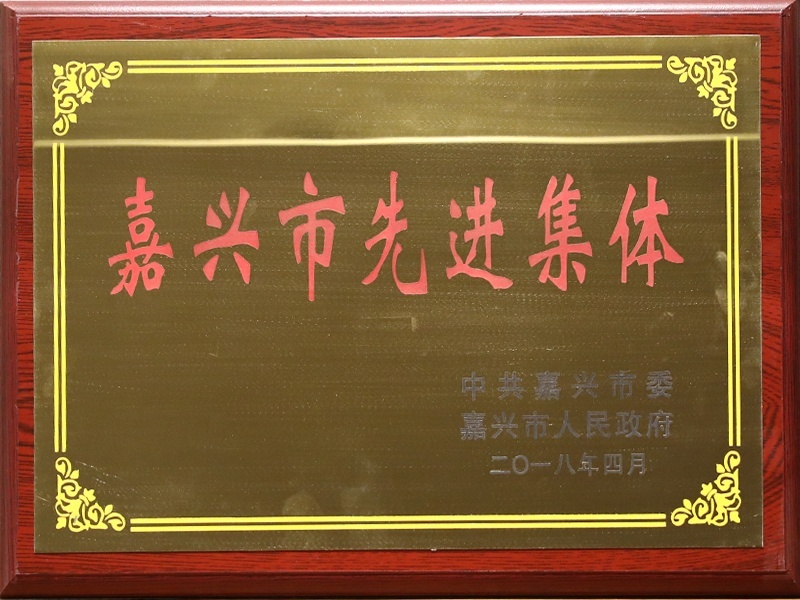 嘉兴市先进集体
中共嘉兴市委
嘉兴市人民政府
二〇一八年四月